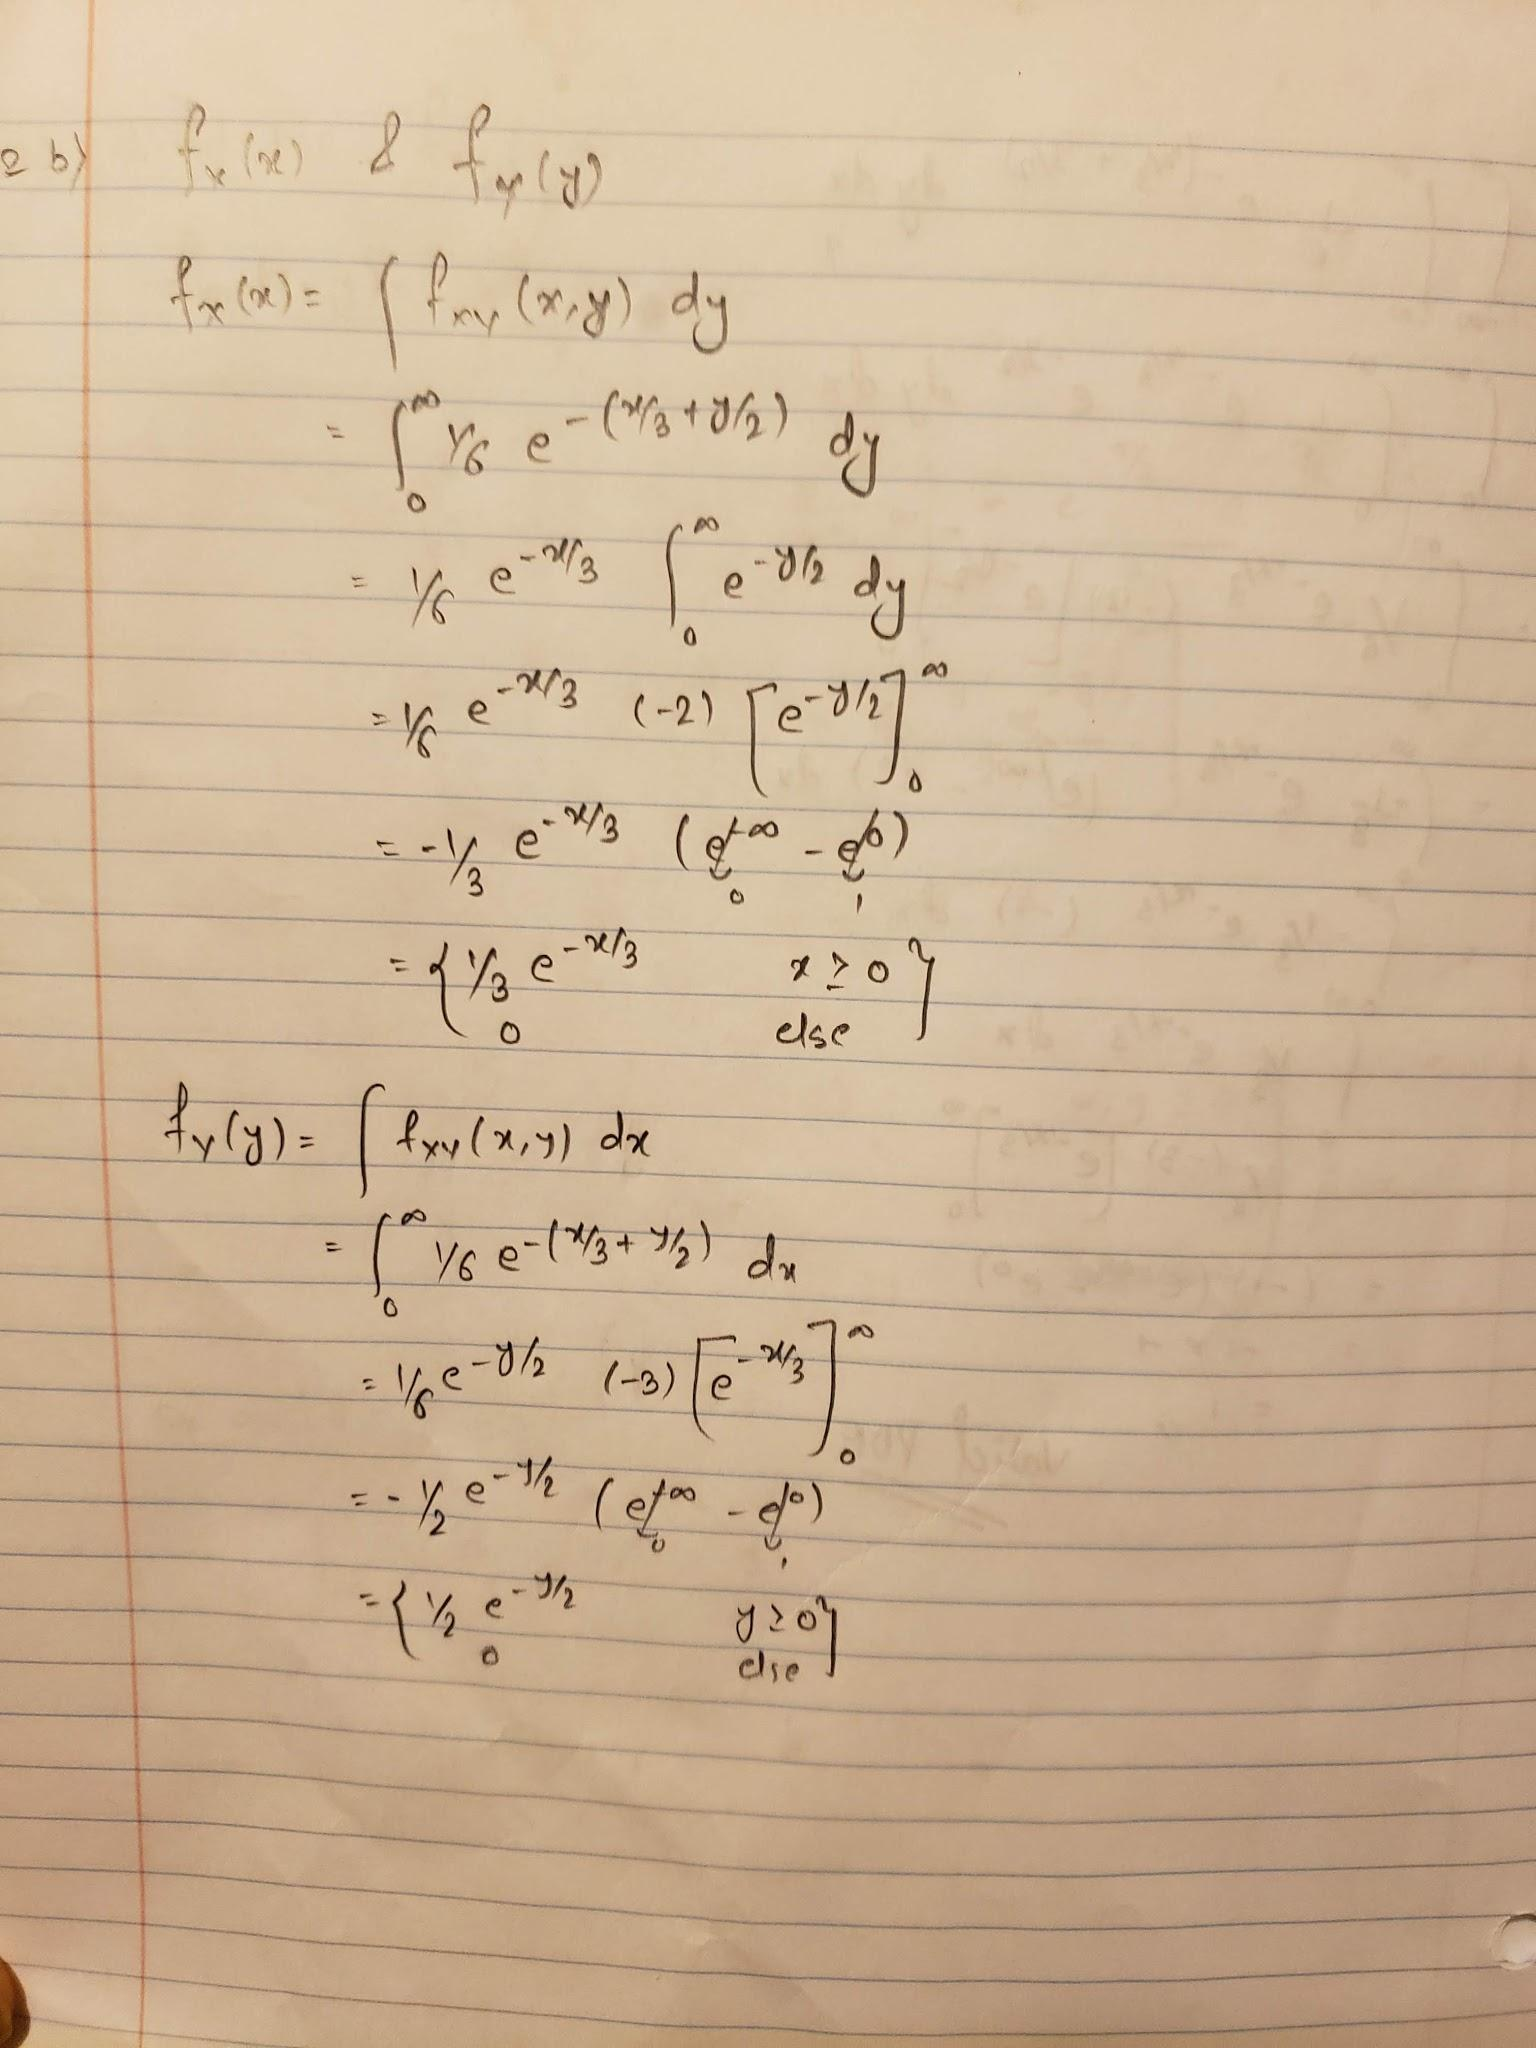 2 b) fx(x) & fy(y)
fx(x) = ∫ fxy (x,y) dy
= ∫₀^∞ 1/6 e^-(x/3 + y/2) dy
= 1/6 e^-x/3 ∫₀^∞ e^-y/2 dy
= 1/6 e^-x/3 (-2) [e^-y/2]₀^∞
= -1/3 e^-x/3 (e^-∞ - e^0)
0 1
= { 1/3 e^-x/3 x ≥ 0 }
0 else
fy(y) = ∫ fxy(x,y) dx
= ∫₀^∞ 1/6 e^-(x/3 + y/2) dx
= 1/6 e^-y/2 (-3) [e^-x/3]₀^∞
= -1/2 e^-y/2 (e^-∞ - e^0)
0 1
= { 1/2 e^-y/2 y ≥ 0 }
0 else